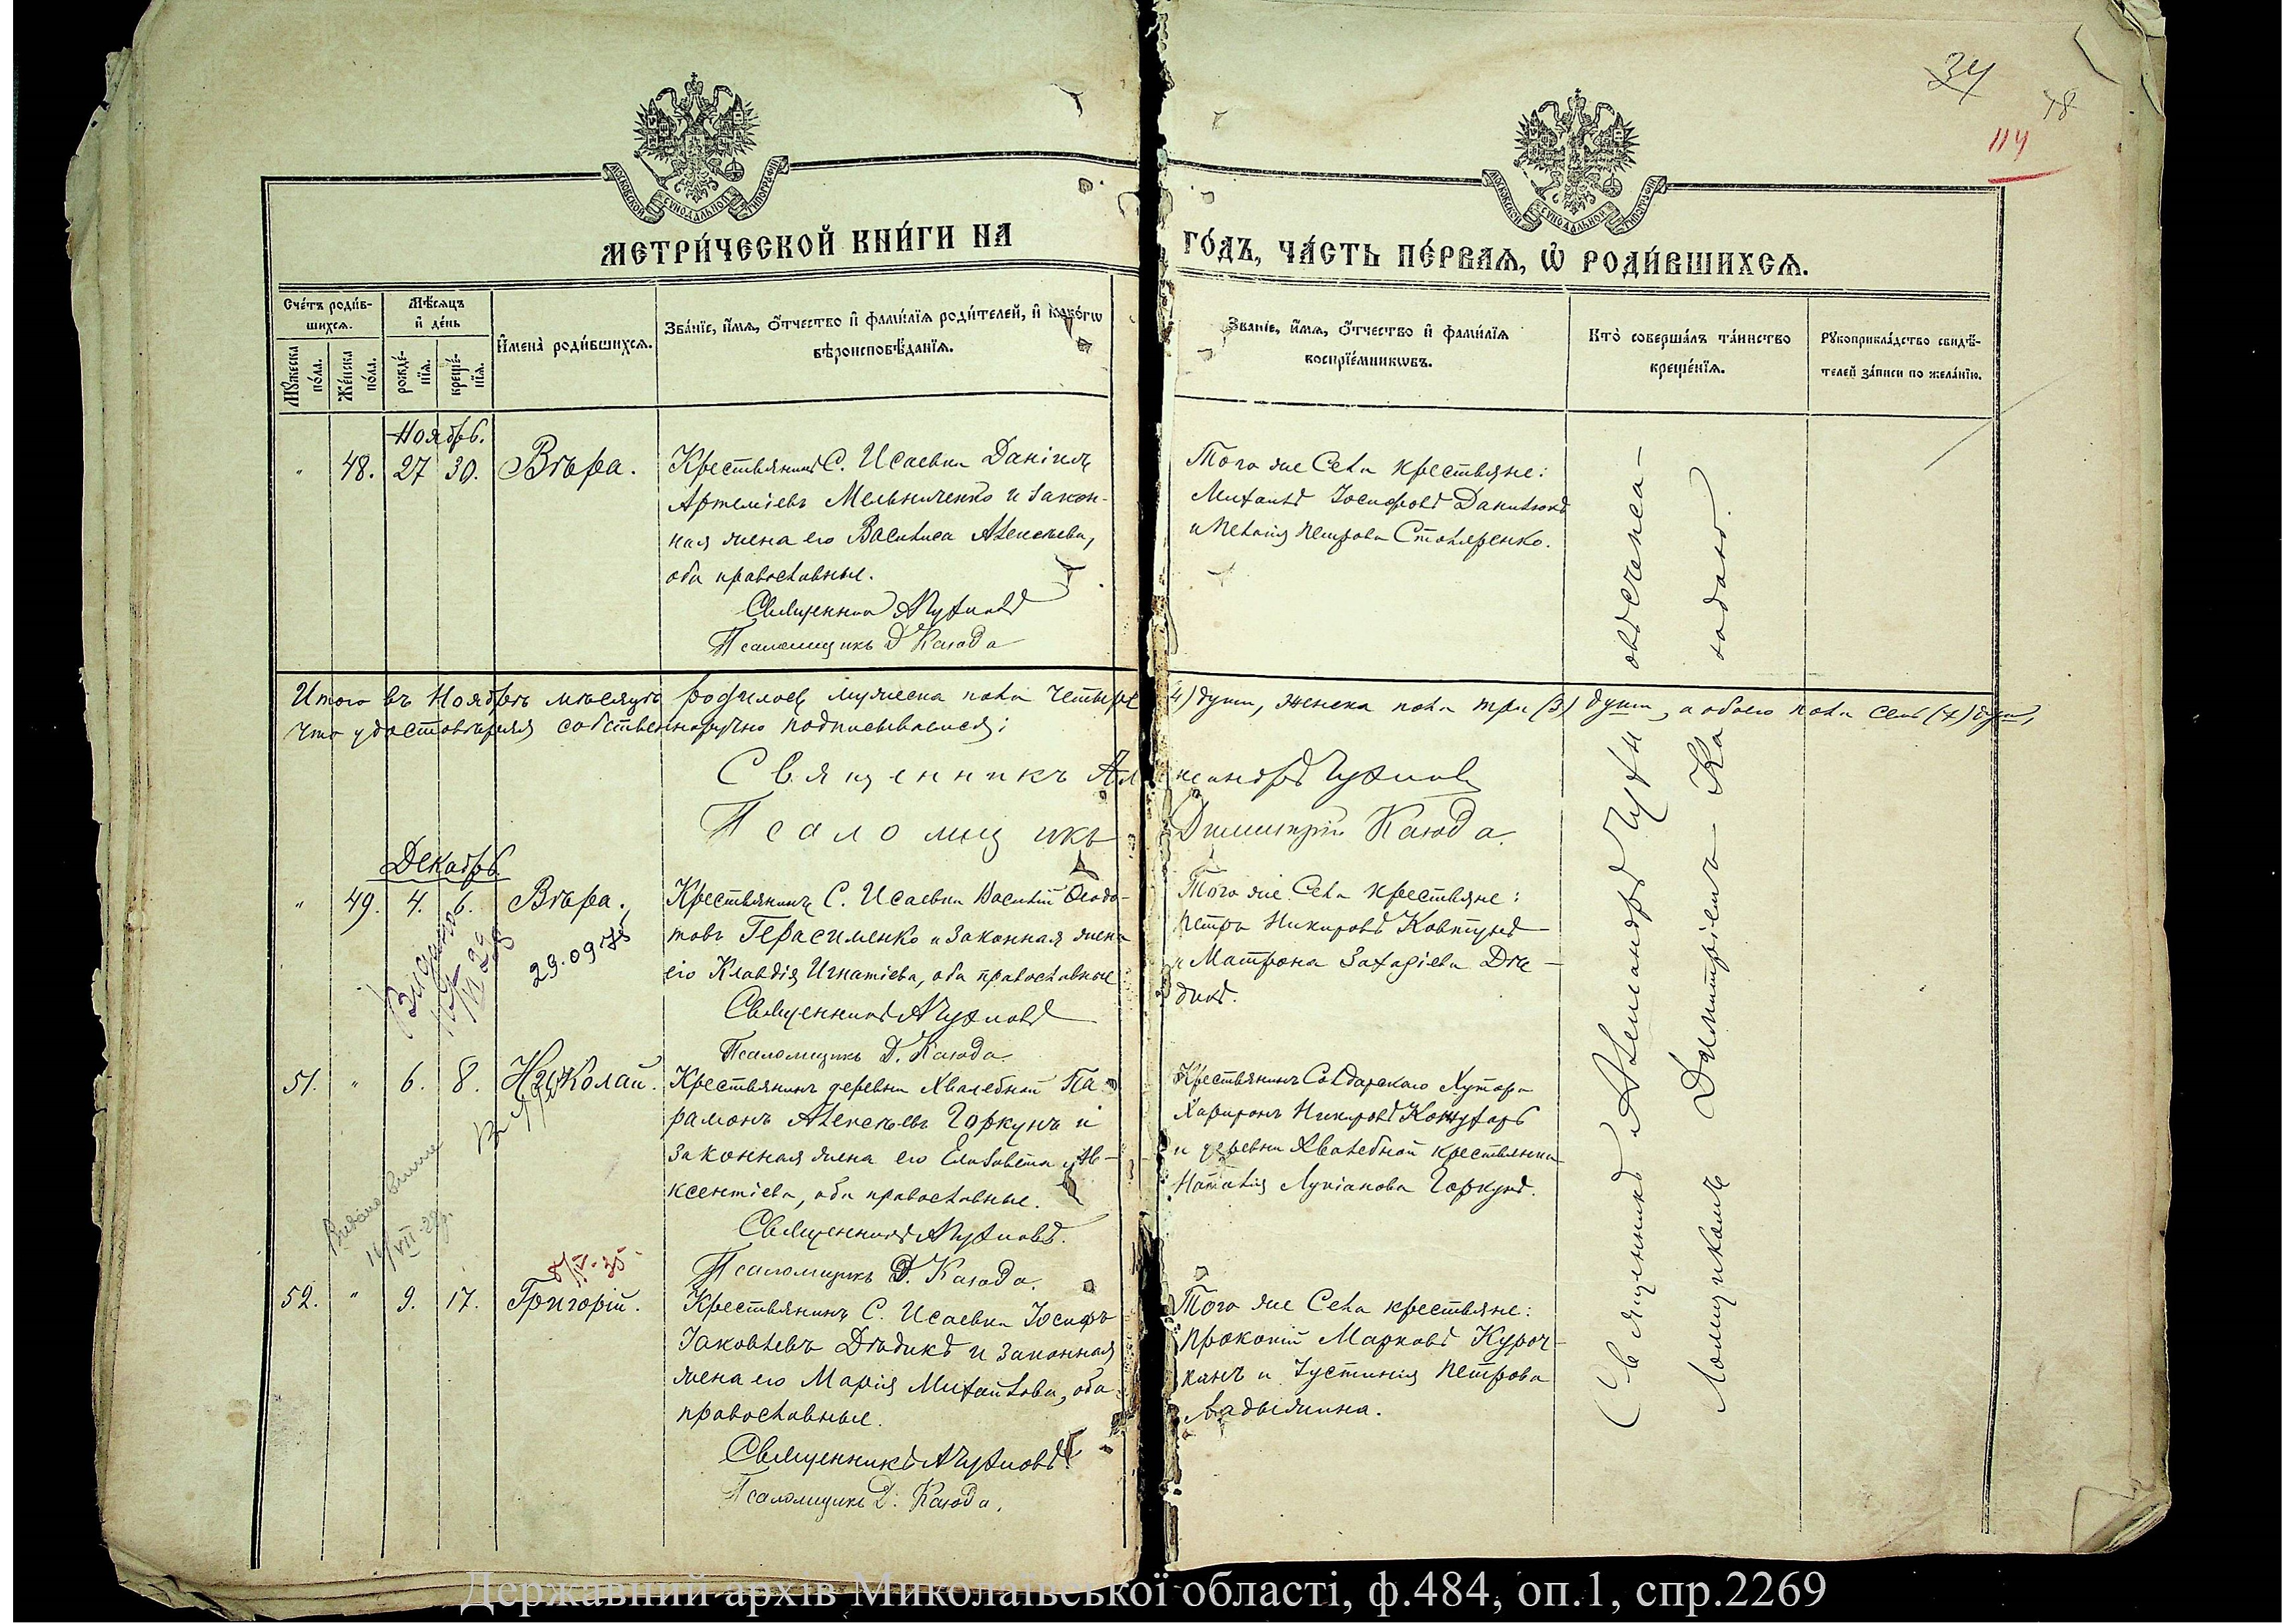 34
48
114
МОСКОВСКОЙ СѴНОДАЛЬНОЙ ТИПОГРАФІИ
МОСКОВСКОЙ СѴНОДАЛЬНОЙ ТИПОГРАФІИ
МЕТРИ́ЧЕСКОЙ КНИ́ГИ НА ГО́ДЪ, ЧА́СТЬ ПЕ́РВАѦ, Ѡ҆ РОДИ́ВШИХСѦ.
Сче́тъ роди́в-
шихсѧ.
Мꙋ́жеска по́ла.
Же́нска по́ла.
Мѣ́сѧцъ и҆ де́нь
рожде́-нїѧ.
креще́-нїѧ.
И҆мена̀ роди́вшихсѧ.
Зва́нїе, и҆́мѧ, ѻ҆́тчество и҆ фами́лїѧ роди́телей, и҆ како́гѡ
вѣроисповѣ́данїѧ.
Зва́нїе, и҆́мѧ, ѻ҆́тчество и҆ фами́лїѧ
воспрїе́мникѡвъ.
Кто̀ соверша́лъ та́инство
креще́нїѧ.
Рꙋкоприкла́дство свидѣ́-
телей за́писи по жела́нїю.
Ноябрь.
" 48. 27 30. Вѣра.
Крестьянинъ С. Исаевки Даніилъ
Артеміевъ Мельниченко и закон-
ная жена его Василиса Алексѣева,
оба православные.
Священникъ А Чухновъ
Псаломщикъ Д Каюда
Того же Села крестьяне:
Михаилъ Іосифовъ Данилюкъ
и Пелагія Петрова Столяренко.
Итого въ Ноябрѣ мѣсяцѣ родилось мужеска пола четыре (4) души, женска пола три (3) души, а обоего пола семь (7) душъ,
что удостовѣряя собственноручно подписываемся:
Священникъ Александръ Чухновъ
Псаломщикъ Димитрій Каюда.
Декабрь
" 49. 4. 6. Вѣра.
29.09
Крестьянинъ С. Исаевки Василій Ѳеодо-
товъ Герасименко и законная жена
его Клавдія Игнатіева, оба православные
Священникъ А Чухновъ
Псаломщикъ Д. Каюда
Того же Села крестьяне:
Петръ Никифоровъ Ковтунъ
и Матрона Захаріева Дѣ-
дикъ.
51. " 6. 8. Николай.
Крестьянинъ деревни Хвалебной Па-
рамонъ Алексѣевъ Горкунъ и
законная жена его Елисавета Ав-
ксентіева, оба православные.
Священникъ А Чухновъ.
Псаломщикъ Д. Каюда.
Крестьянинъ Солдарскаго Хутора
Никифоровъ Кожухарь
и деревни Хвалебной крестьянка
Наталія Лукіанова Горкунъ.
VII
52. " 9. 17. Григорій.
Крестьянинъ С. Исаевки Іосифъ
Іаковлевъ Дѣдикъ и законная
жена его Марія Михаилова, оба
православные.
Священникъ А Чухновъ
Псаломщикъ Д. Каюда.
Того же Села крестьяне:
Прокопій Марковъ Куроч-
кинъ и Іустинія Петрова
Ладыжина.
Священникъ Александръ Чухновъ с пса-
ломщикомъ Димитріемъ Каюдою.
Державний архів Миколаївської області, ф.484, оп.1, спр.2269